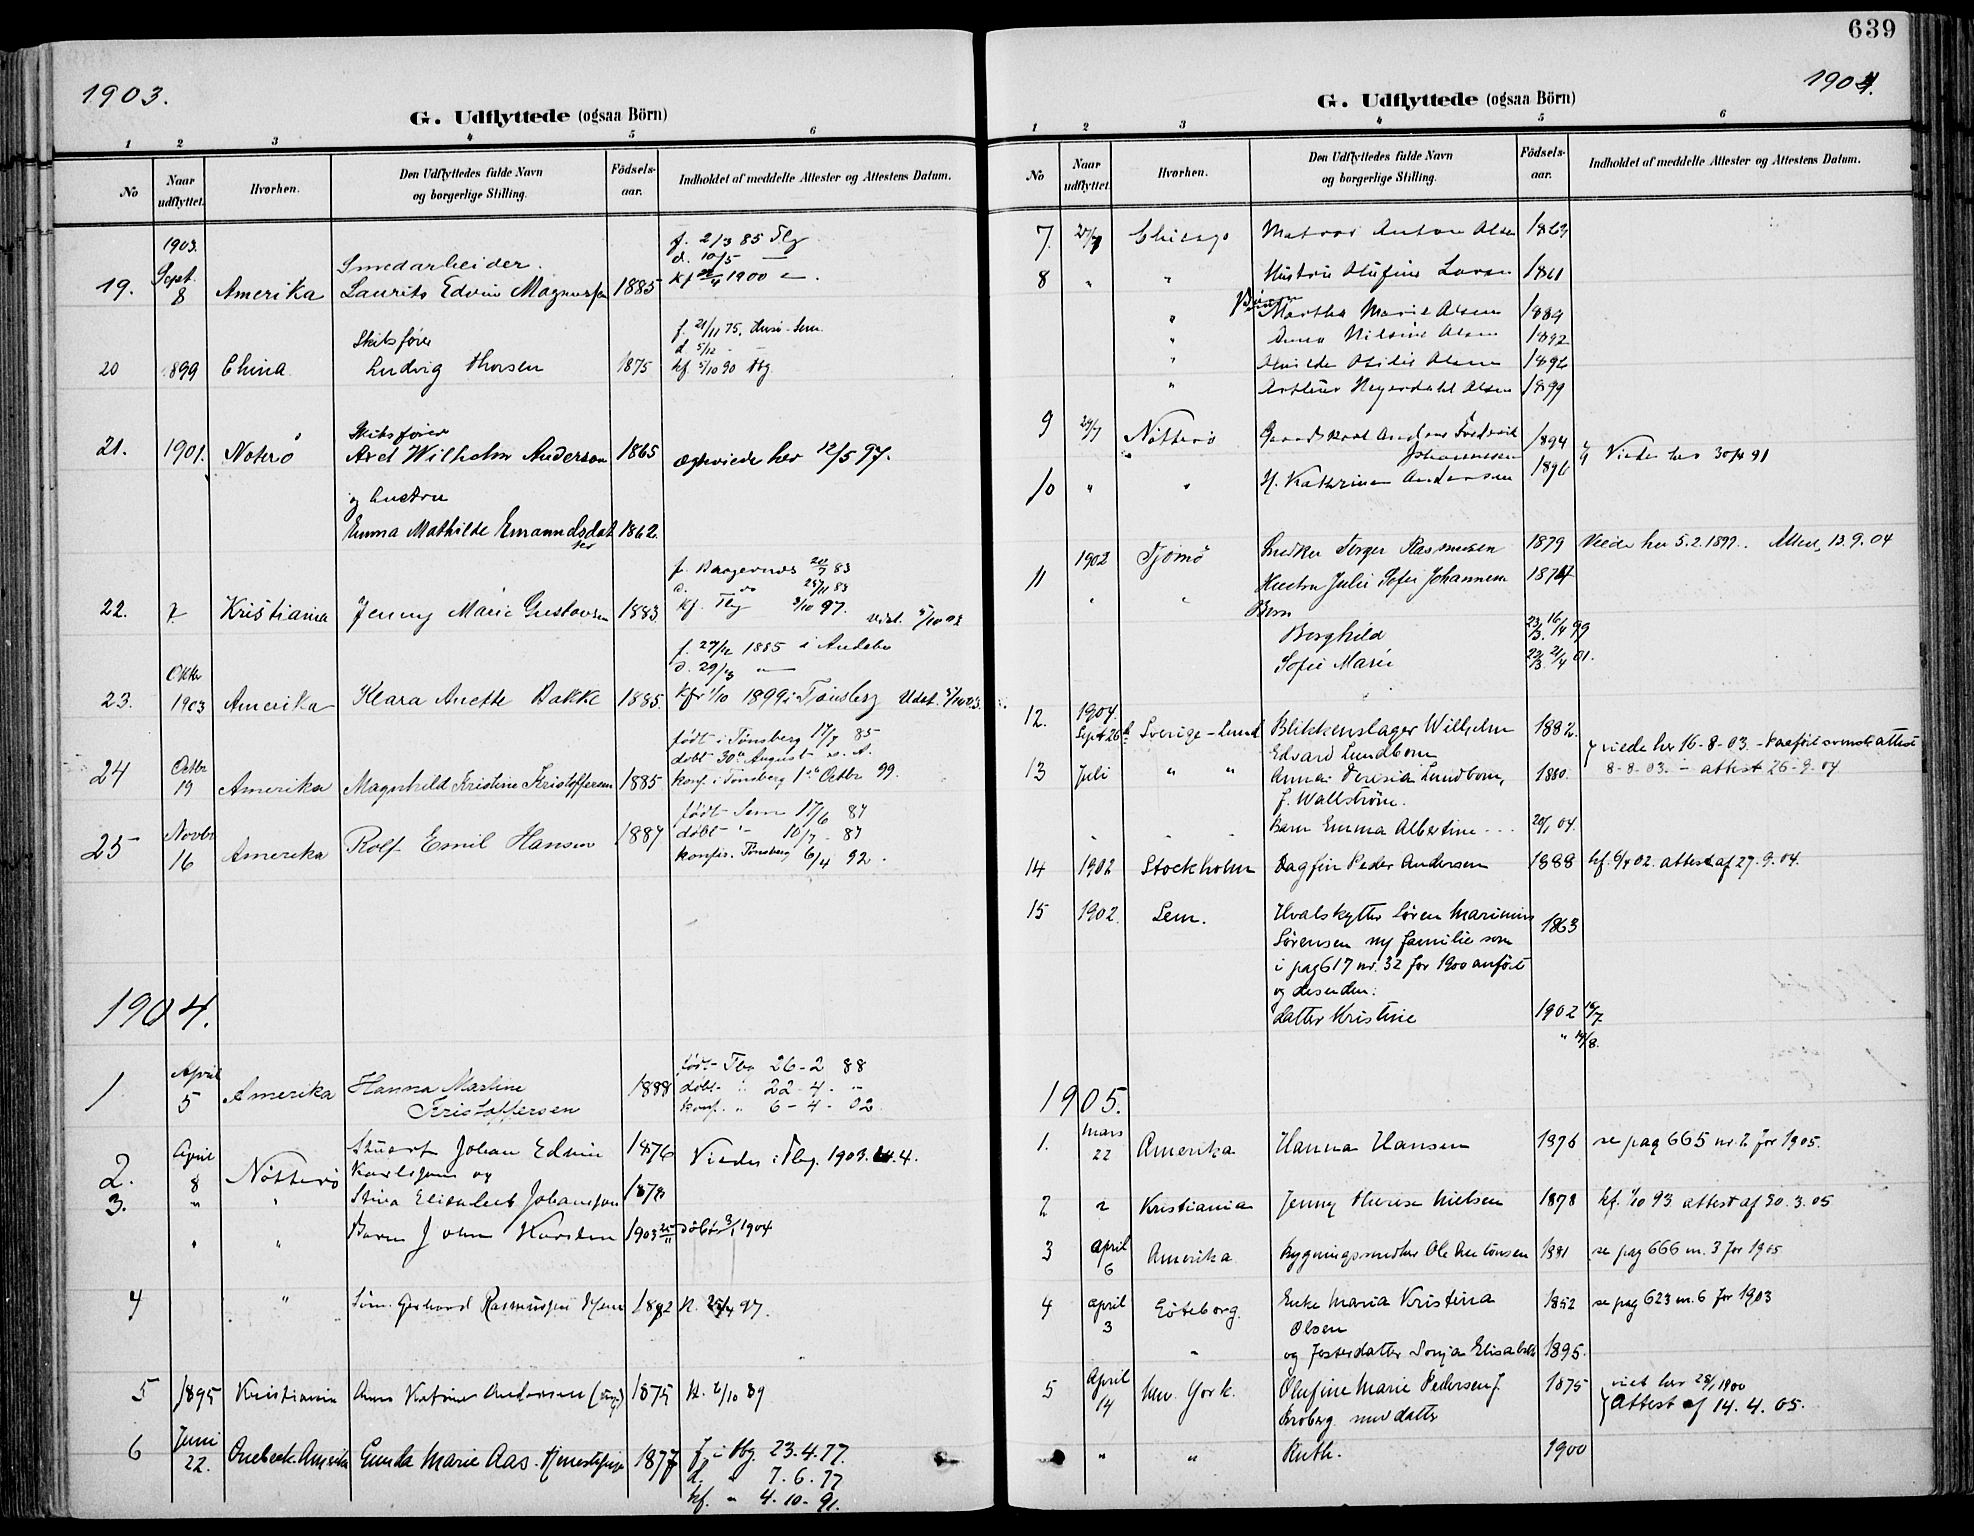 1903.
G. Udflyttede (ogsaa Börn)
1 2 3 4 5 6
No
Naar udflyttet.
Hvorhen.
Den Udflyttedes fulde Navn og borgerlige Stilling.
Födselsaar.
Indholdet af meddelte Attester og Attestens Datum.
1903.
f. 2/3 85 Tbg
d. 10/5 —
Smedarbeider.
19. Sept. 8 Amerika Laurits Edvin Magnussen 1885 kf 1900 —
f. 21/11 75. Sem.
Skibsfører
d 5/12
20 1899 China Ludvig Thorsen 1875 kf. 5/10 90 Tbg
Skibsfører
21. 1901. Noterö Axel Wilhelm Anderson 1865 ægteviede her 12/5 97.
og hustru
Emma Mathilde Emanuelsdatter 1862.
f. Bragernes 20/7 83
d. do 25/11 83
22. Kristiania Jenny Marie Gustavsen 1883 kf. Tbg 3/10 97. udst. 5/10 03
f. 27/12 1885 i Andebu
d. 29/3 —
23. Oktbr 1903 Amerika Klara Anette Bakke 1885. kfr 1/10 1899 i Tønsberg Udst. 5/10 03.
født i Tønsberg 17/7 85
døbt 30te August s. A.
24 Octbr 19 Amerika Magnhild Kristine Kristoffersen 1885 konf. i Tønsberg 1ste Octbr 99.
født Sem 17/6 87
døbt " 10/7 - 87
25 Novbr 16 Amerika Rolf Emil Hansen 1887 konfir. Tønsberg 6/4 92.
1904.
født Tbg 26-2 88
1 April 5 Amerika Hanna Martine Kristoffersen 1888 døbt " 22-4- "
konf. " 6-4-02.
2. April 8 Nøtterø Stuert Johan Edvin Karlsson og 1876 Viede i Tbg. 1903. 4.
3. " " Stina Elisabet Johansson 1878
" " Barn John Karsten 1903 døbt 3/1 1904
4 " Søm. Gerhard Rasmussen 1882 k. 25/4 97.
5 1895 Kristiania Anna Katrine Andersen (ugg) 1875 k. 2/10 89
6 Juni 22. Quebeck. Amerika Gunda Marie Aas. tjenestepige 1877 f i Tbg 23.4.77.
d. " 7.6.77
kf. " 4.10.91.
639
1904.
G. Udflyttede (ogsaa Börn)
1 2 3 4 5 6
No
Naar udflyttet.
Hvorhen.
Den Udflyttedes fulde Navn og borgerlige Stilling.
Födselsaar.
Indholdet af meddelte Attester og Attestens Datum.
7. 27/7 Chicago Matros Anton Olsen 1863
8 " " Hustru Olufine Larsen 1861
Børn
" Martha Marie Olsen 1884
" Anna Nilsine Olsen 1892
" Otilie Olsen 1896
" Arthur Heyerdahl Olsen 1899
9 29/7 Nøtterø Gaardskarl Anders Fredrik Johannessen 1894 Viede her 30/4 91
10 " " H. Kathrine Andersen 1896
1902 Tjømø Snedker Torger Rasmussen 1879 Viede her 5.2.1899. Attest, 13.9.04
11 " " Hustru Julie Sofie Johannesen 1874
Børn
Borghild 23/3 16/4 99
Sofie Marie 22/3 21/4 01.
12. 1904. Sept 26 Sverige - Lund Blikkenslager Wilhelm Edvard Lundbom 1882. viede her 16-8-03. - forevist svensk attest
13 Juli " " Anna Teresia Lundbom, f. Wallström. 1880. 8-8-03. - attest 26-9-04
" " " Barn Emma Albertine - . . 20/1 04.
14 1902 Stockholm Dagfin Peder Andersen 1888 kf. 6/4 02. attest af 27.9.04.
15 1902. Sem. Hvalskytter Søren Marinius 1863
Sørensen m/ familie som
i pag 617 nr. 32 for 1900 anført
og desuden:
datter Kristine 1902 16/7
" 14/8.
1905.
1. Mars 22 Amerika Hanna Hansen 1876 se pag 665 nr. 2 for 1905.
2 " Kristiania Jenny Therese Nielsen 1878 kf. 1/10 93 attest af 30.3.05
3 April 6 Amerika Bygningssnedker Ole Antonsen 1881 se pag 666 nr. 3 for 1905
4 April 3 Göteborg. Enke Maria Kristina Olsen 1852 se pag 623 nr. 6 for 1903
" og fosterdatter Sonja Elisabeth 1895.
5 April 14 New York. Olufine Marie Pedersen f. Broberg med datter 1875 viet her 28/1 1900
Attest af 14.4.05.
" " Ruth. 1900